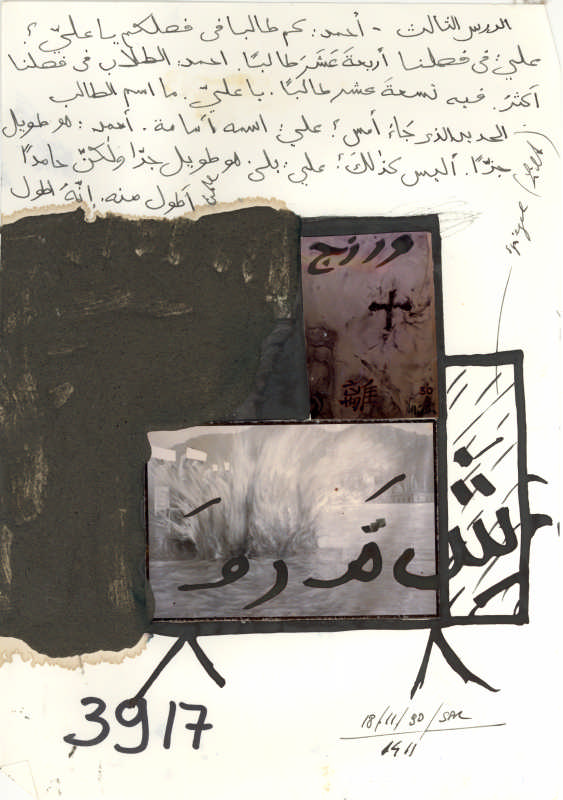 الدرس الثالث - أحمد: كم طالبا فى فصلكم يا عليّ؟
عليّ: فى فصلنا أربعةَ عَشَرَ طالبًا. احمد: الطلاب فى فصلنا
اَكثرُ. فيه تسعةَ عشر طالبًا. يا عليّ. ما اسم الطالب
الجديد الذى جَاءَ أمس؟ علي: اسمه أسامة. أحمد: هو طويل
جدًّا. أليس كذلكَ؟ علي: بلى. هو طويل جدًّا ولكنّ حامدًا
اَطول منه. إنَّهُ اطول
離
30
3917
18/11/90/SAL
1411